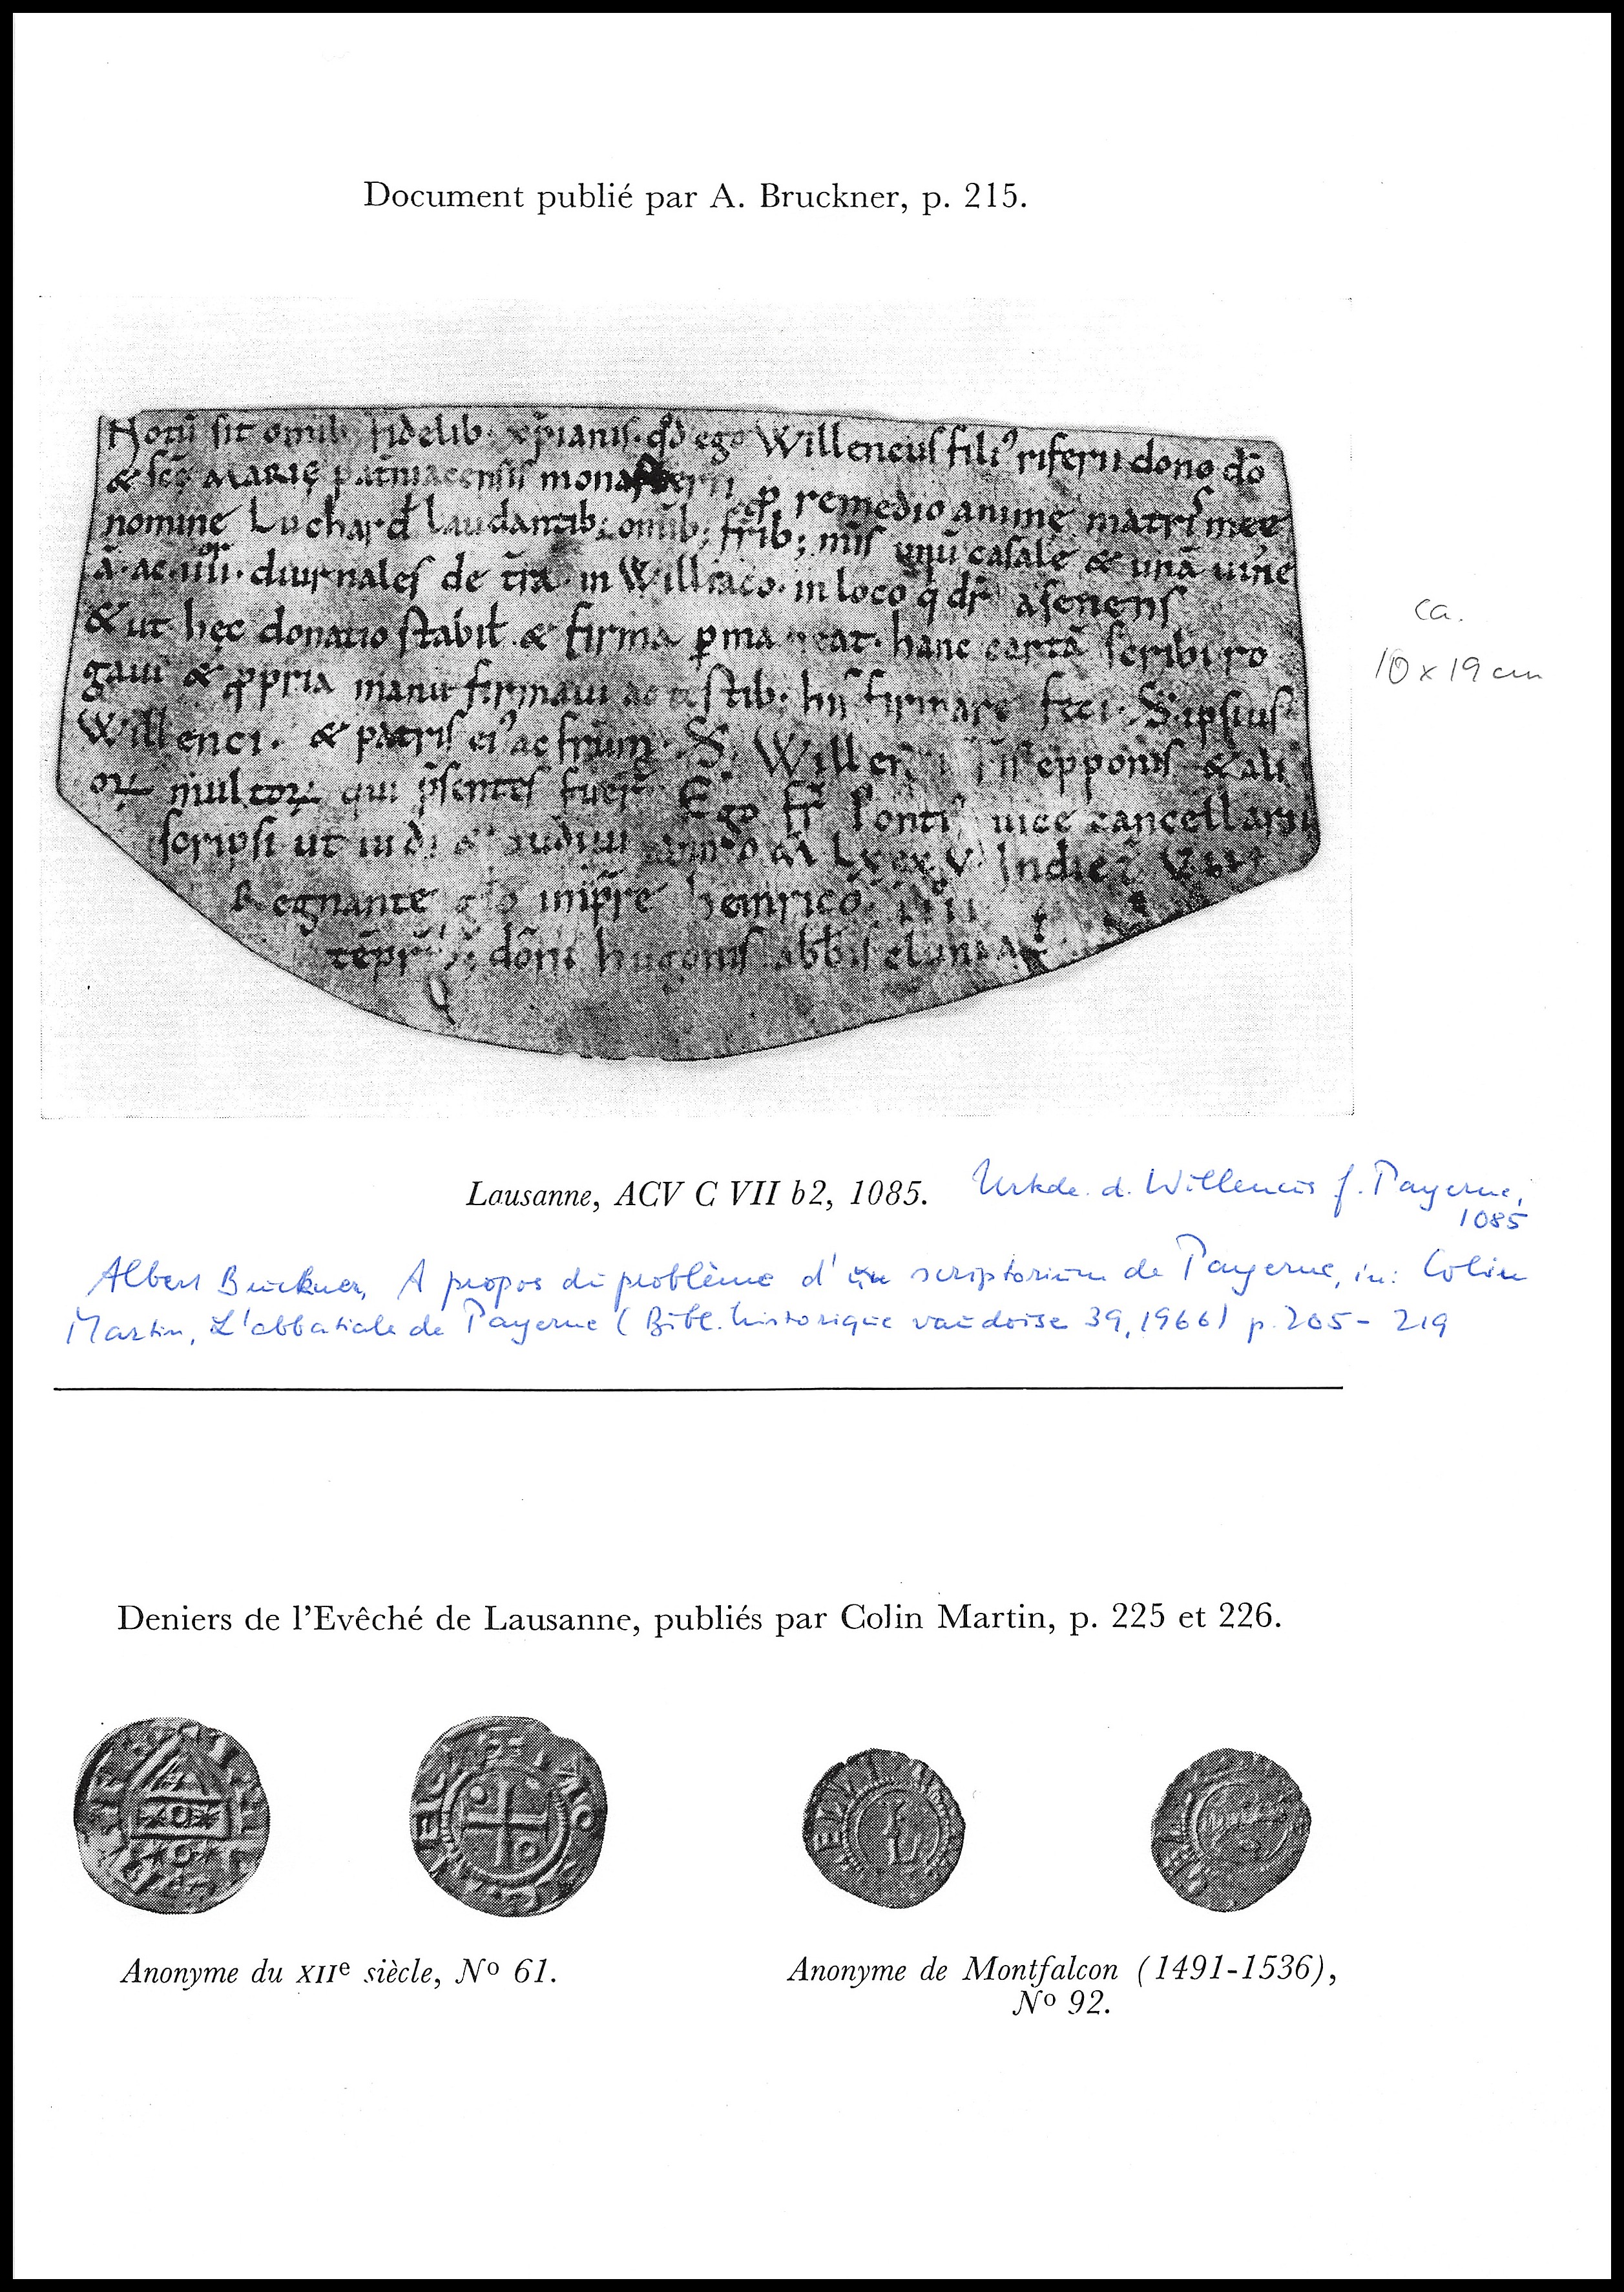 Document publié par A. Bruckner, p. 215.
Notū sit omib; fidelib; xp̄ianis. qd̄ ego Willencus fili⁹ riferii dono dō
& scę MARIĘ pat̄niacensis monasterii ꝓ remedio animę matris meę
nomine Luchard laudantib; omīb; frīb; mīs unū casale & unā uine
ā. ac .iiii.or diurnales de t̄ra. in Williaco. in loco q̄ dr̄ asenens
& ut hęc donatio stabil̄ & firma ꝑmaneat. hanc cartā scribi ro
gaui & ꝓpria manu firmaui ac testib; hiis firmare feci. S. ipsius
Willenci. & patris ei⁹ ac frūm. S. Willen epponis & ali
oꝝ multoꝝ qui p̄sentes fuer̄ Ego fr̄ Ponti⁹ uice cancellarii
scripsi ut uidi & audiui M LXXX V Indic̄
Regnante imp̄re heinrico IIII
tēpr̄ dōni hugonis abb̄is cluniac̄
ca.
10 x 19 cm
Lausanne, ACV C VII b2, 1085. Urkde. d. Willencus f. Payerne,
1085
Albert Bruckner, A propos du problème d'un scriptorium de Payerne, in: Colin
Martin, L'abbatiale de Payerne (Bibl. historique vaudoise 39, 1966) p. 205 - 219
Deniers de l'Evêché de Lausanne, publiés par Colin Martin, p. 225 et 226.
Anonyme du XIIe siècle, No 61.
Anonyme de Montfalcon (1491-1536),
No 92.